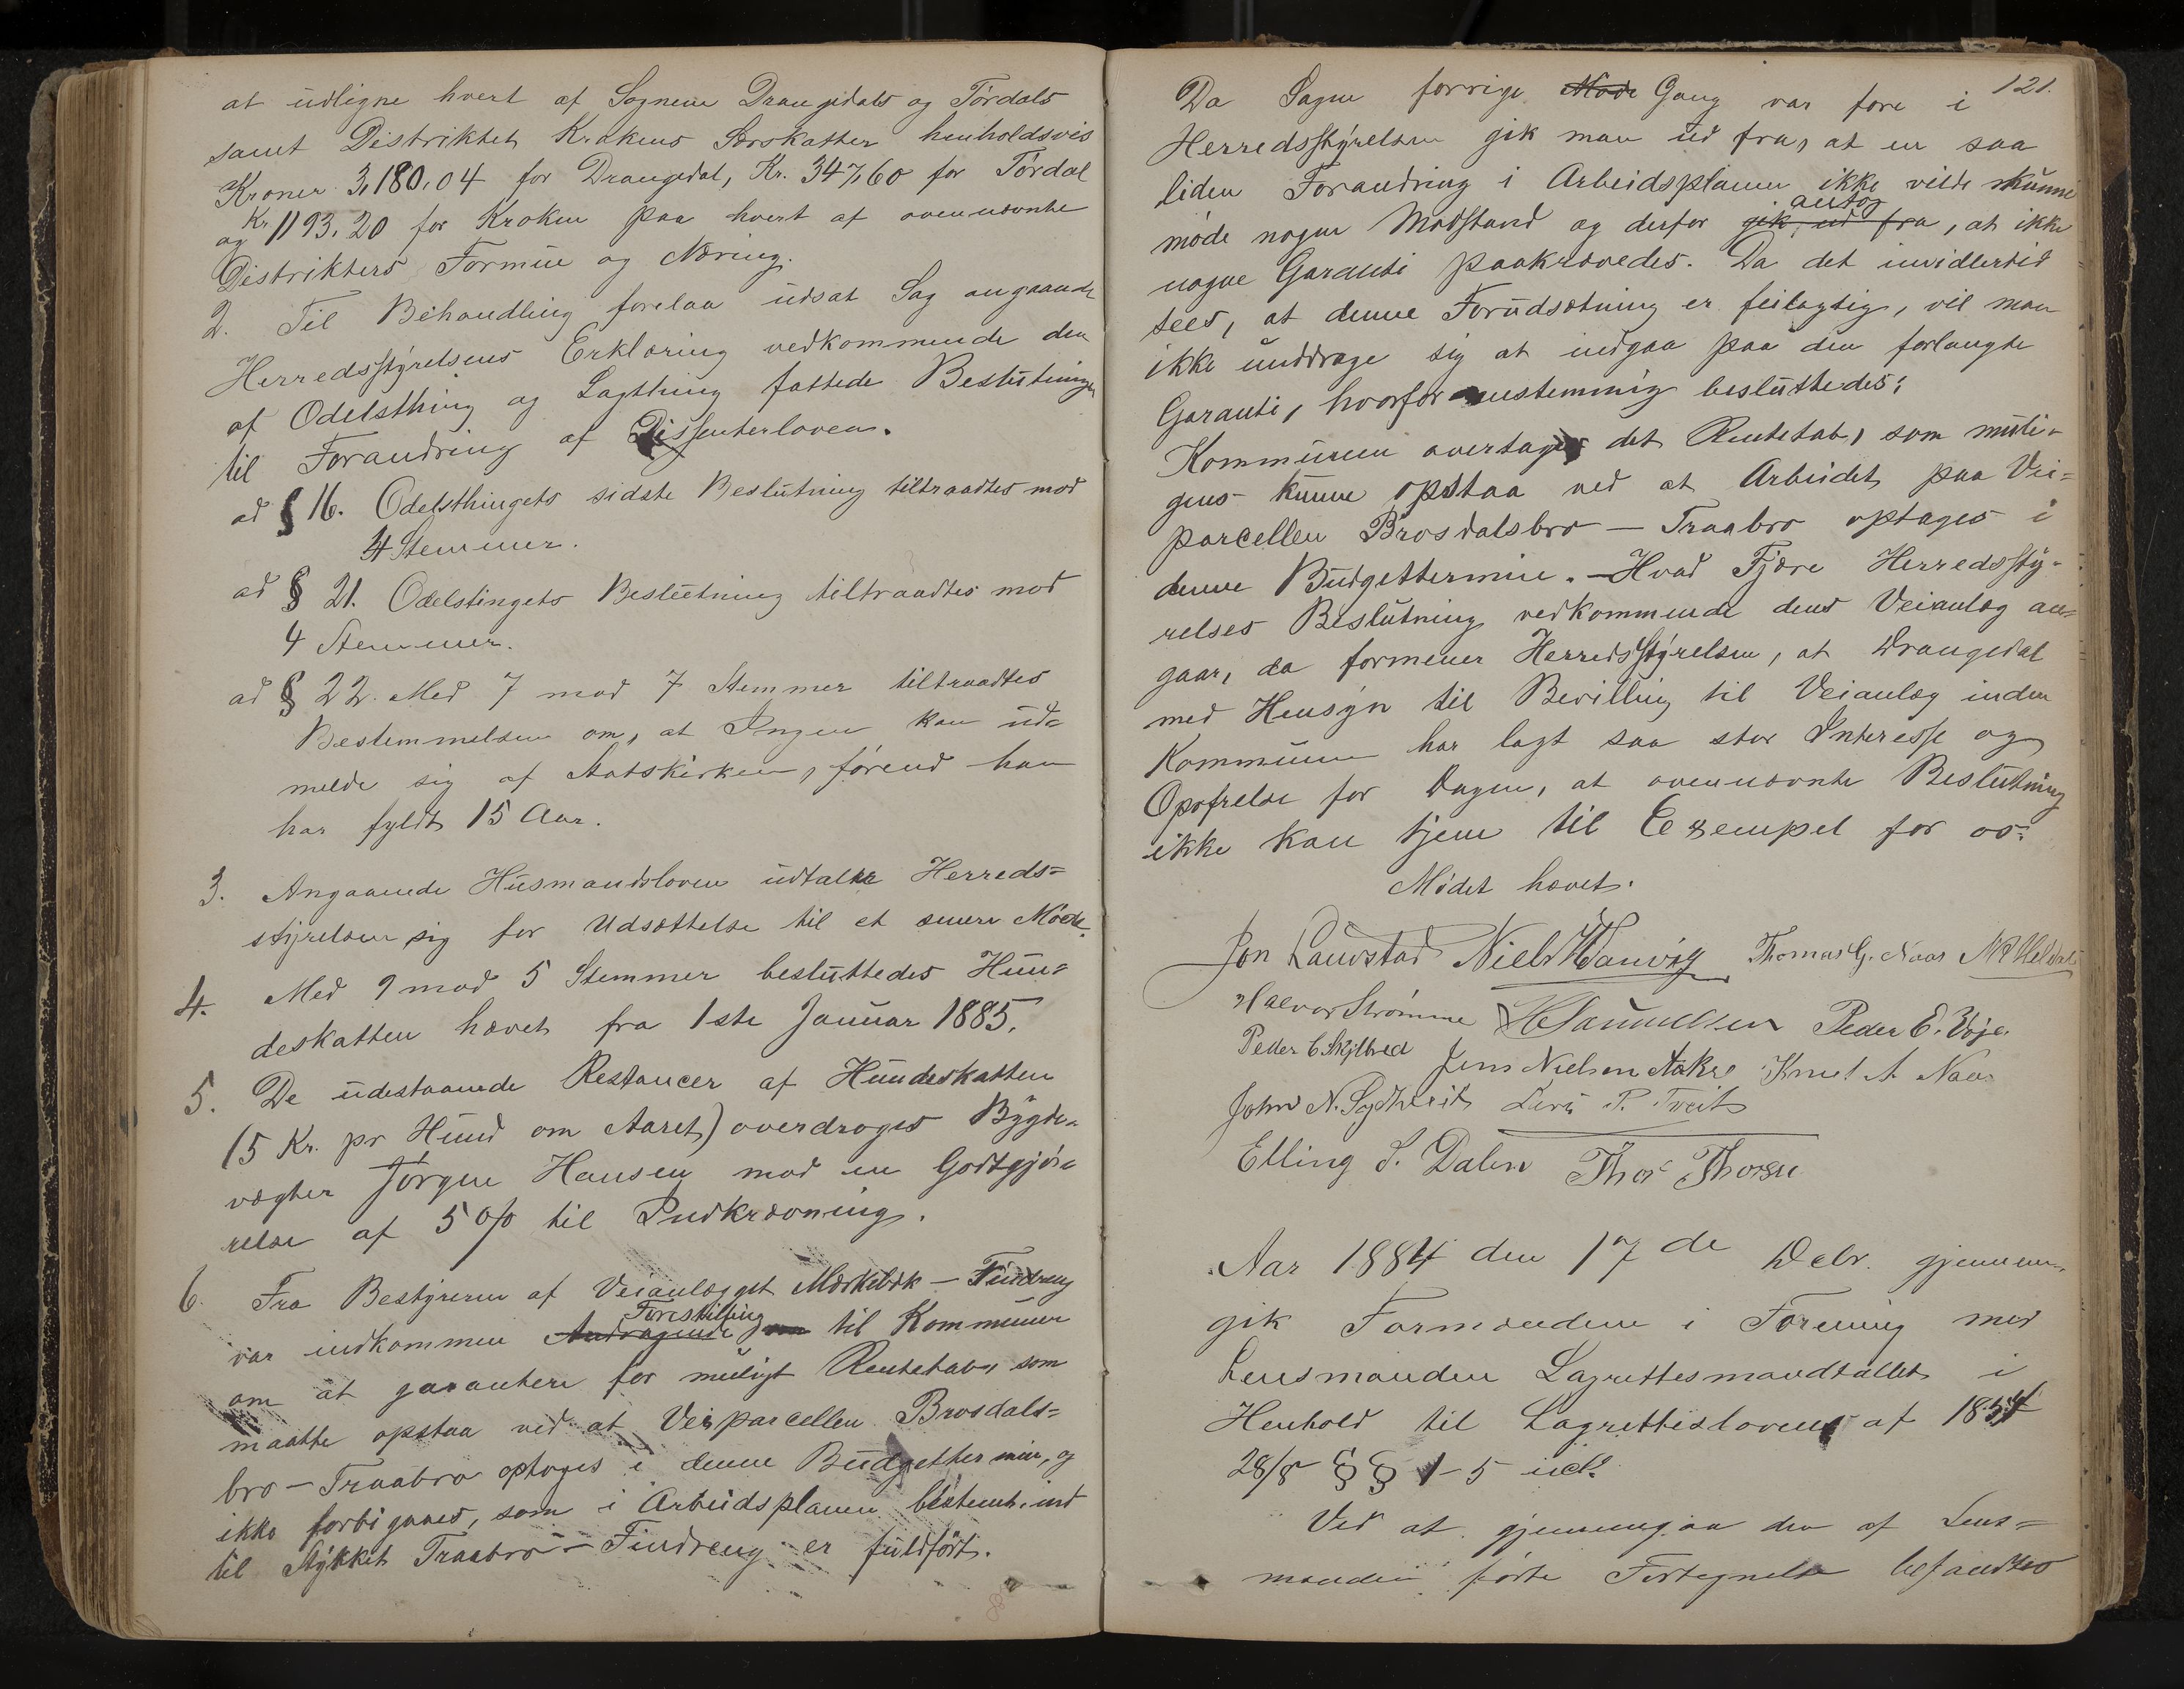 at udligne hvert af Sognene Drangedals og Tördals
samt Distriktet Krokens Særskatter henholdsvis
Kroner 3,180,04 for Drangedal, Kr. 347,60 for Tördal
og Kr. 1193,20 for Kroken paa hvert af ovennævnte
Distrikters Formue og Næring.
2. Til Behandling forelaa udsat Sag angaaende
Herredsstyrelsens Erklæring vedkommende den
af Odelsthing og Lagthing fattede Beslutninger
til Forandring af Dissenterloven.
ad § 16. Odelsthingets sidste Beslutning tiltraadtes mod
4 Stemmer.
ad § 21. Odelstingets Beslutning tiltraadtes mod
4 Stemmer.
ad § 22. Med 7 mod 7 Stemmer tiltraadtes
Bestemmelsen om, at Ingen kan ud-
melde sig af Statskirken, förend han
har fyldt 15 Aar.
3. Angaaende Husmandsloven udtalte Herreds=
styrelsen sig for Udsættelse til et senere Möde.
4. Med 9 mod 5 Stemmer besluttedes Hun=
deskatten hævet fra 1ste Januar 1885.
5. De udestaaende Restancer af Hundeskatten
(5 Kr. pr Hund om Aaret) overdroges Bygde-
vægter Jörgen Hansen mod en Godtgjö-
relse af 5 % til Indkrævning.
6. Fra Bestyreren af Veianlægget Mærkebæk - Findreng
var indkommen Andragende Forestilling om til Kommunen
om at garantere for muligt Rentetab, som
maatte opstaa ved at Veiparcellen Brosdals=
bro - Traabro optages i denne Budgettermin, og
ikke forbigaaes, som i Arbeidsplanen bestemt, ind
til Stykket Traabro - Findreng er fuldfört.
121.
Da Sagen forrige Möde Gang var fore i
Herredsstyrelsen gik man ud fra, at en saa
liden Forandring i Arbeidsplanen ikke vilde kunne
möde nogen Modstand og derfor gik ud fra antog, at ikke
nogen Garanti paakrævedes. Da det imidlertid
sees, at denne Forudsætning er feilagtig, vil man
ikke unddrage sig at indgaa paa den forlangte
Garanti, hvorfor enstemmig besluttedes:
Kommunen overtager det Rentetab, som muli-
gens kunne opstaa ved at Arbeidet paa Vei=
parcellen Brosdalsbro - Traabro optages i
denne Budgettermin. - Hvad Fjære Herredssty-
relses Beslutning vedkommende dens Veianlæg an=
gaar, da formener Herredsstyrelsen, at Drangedal
med Hensyn til Bevilling til Veianlæg inden
Kommunen har lagt saa stor Interesse og
Opofrelse for Dagen, at ovennævnte Beslutning
ikke kan tjene til Exempel for os.
Mödet hævet.
Jon Lauvstad Niels Wanvig Thomas G. Naas
Halvor Strömme H Samuelsen Peder E. Voje.
Peder C. Skjelbred Jens Nielsen Aakre Knut A Naas
John N. Sydtveit Lars P. Tveit
Elling S. Dalen Thor Thorsen
Aar 1884 den 17de Debr. gjennem-
gik Formændene i Forening med
Lensmanden Lagrettesmandtallet i
Henhold til Lagretteslovens af 1854
28/8 §§ 1-5 incl.
Ved at gjennemgaa den af Lens=
manden förte Fortegnelse befandtes